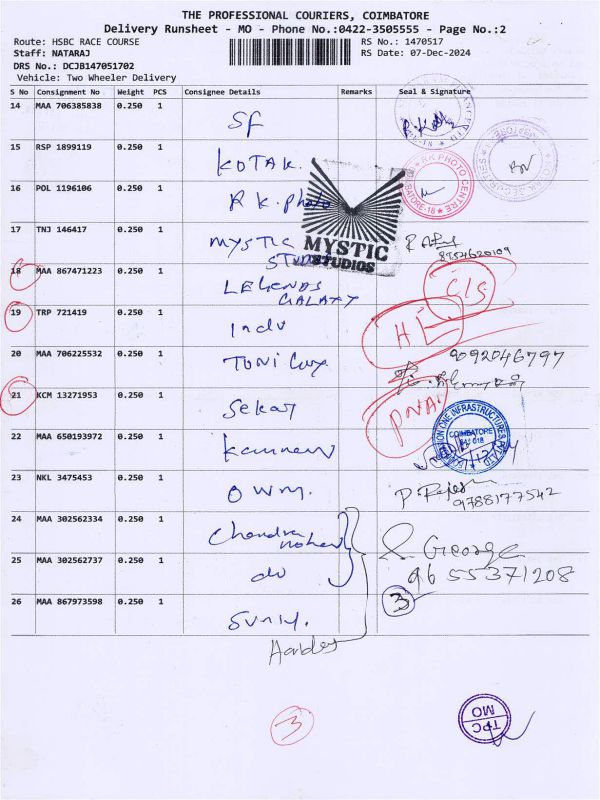 THE PROFESSIONAL COURIERS, COIMBATORE
Delivery Runsheet - MO - Phone No.:0422-3505555 - Page No.:2
Route: HSBC RACE COURSE
RS No.: 1470517
Staff: NATARAJ
RS Date: 07-Dec-2024
DRS No.: DCJB147051702
Vehicle: Two Wheeler Delivery
S No Consignment No Weight PCS Consignee Details Remarks Seal & Signature
14 MAA 706385838 0.250 1 SF
15 RSP 1899119 0.250 1 KOTAK.
16 POL 1196106 0.250 1 R K. Photo
RK PHOTO CENTRE
17 TNJ 146417 0.250 1 MYSTIC
STUDIOS
MYSTIC
STUDIOS
8754620109
18 MAA 867471223 0.250 1 LEGENDS
GALAXY
C/S
19 TRP 721419 0.250 1 Indu
20 MAA 706225532 0.250 1 TONi Guy
9092046797
21 KCM 13271953 0.250 1 Sekar
PNA
ONE INFRASTRUCTURES PVT LTD
COIMBATORE
22 MAA 650193972 0.250 1
23 NKL 3475453 0.250 1 OWM.
P. Rajesh
9788177542
24 MAA 302562334 0.250 1 Chandra
mohan
George
25 MAA 302562737 0.250 1 do
96 55371208
3
26 MAA 867973598 0.250 1
3
TPC
MO